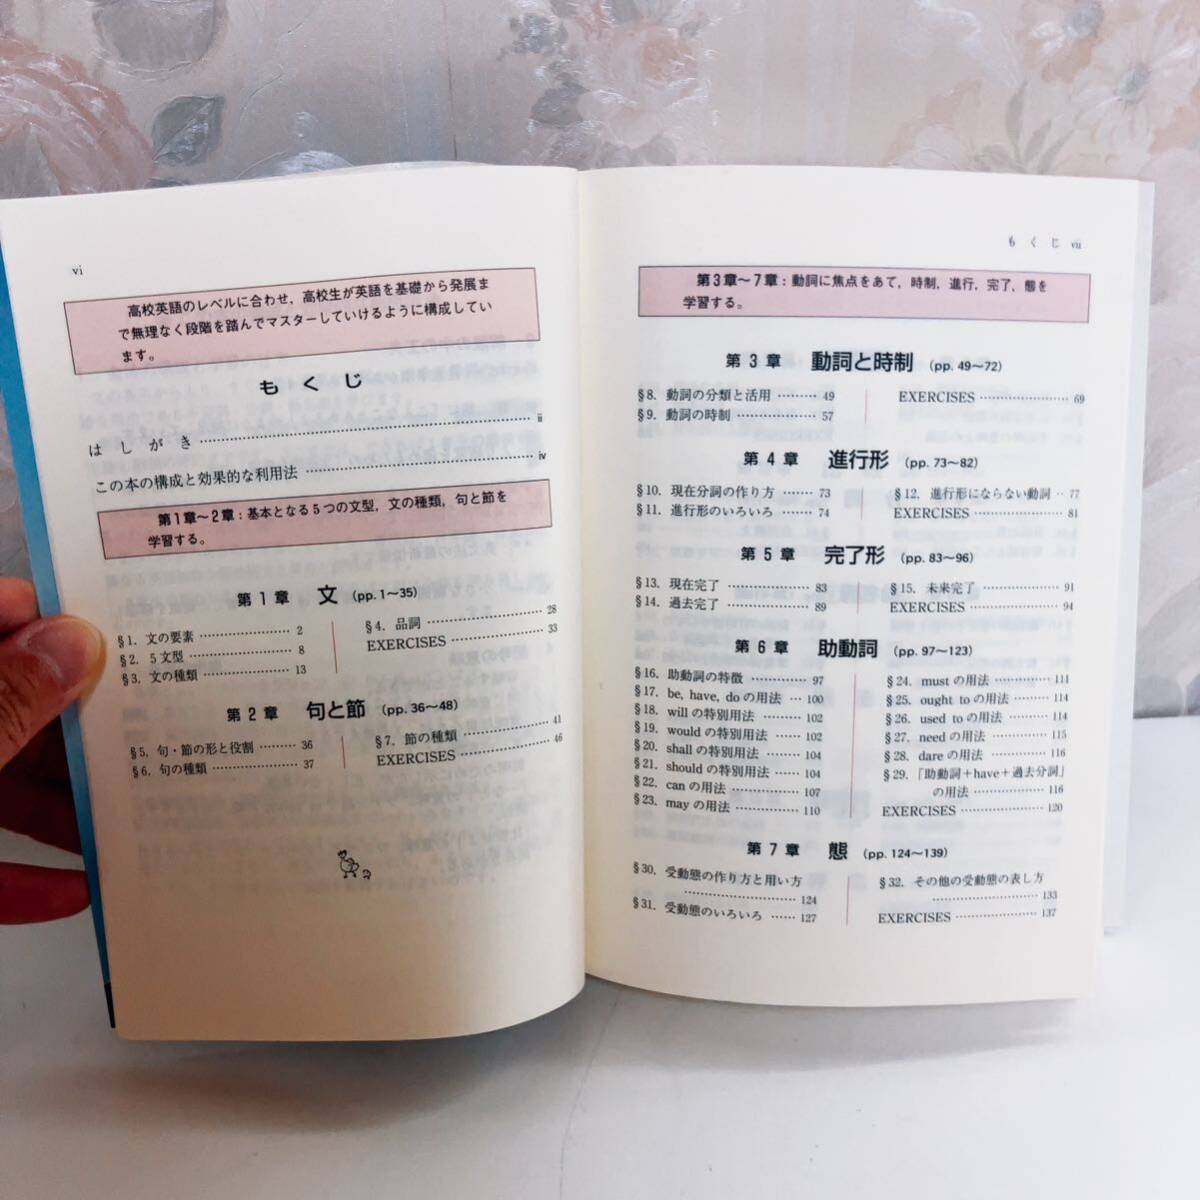 vi
高校英語のレベルに合わせ，高校生が英語を基礎から発展ま
で無理なく段階を踏んでマスターしていけるように構成してい
ます。
もくじ
はしがき ii
この本の構成と効果的な利用法 iv
第1章～2章：基本となる5つの文型，文の種類，句と節を
学習する。
第1章 文 (pp. 1～35)
§1. 文の要素 2
§2. 5文型 8
§3. 文の種類 13
§4. 品詞 28
EXERCISES 33
第2章 句と節 (pp. 36～48)
§5. 句・節の形と役割 36
§6. 句の種類 37
§7. 節の種類 41
EXERCISES 46
もくじ vii
第3章～7章：動詞に焦点をあて，時制，進行，完了，態を
学習する。
第3章 動詞と時制 (pp. 49～72)
§8. 動詞の分類と活用 49
§9. 動詞の時制 57
EXERCISES 69
第4章 進行形 (pp. 73～82)
§10. 現在分詞の作り方 73
§11. 進行形のいろいろ 74
§12. 進行形にならない動詞 77
EXERCISES 81
第5章 完了形 (pp. 83～96)
§13. 現在完了 83
§14. 過去完了 89
§15. 未来完了 91
EXERCISES 94
第6章 助動詞 (pp. 97～123)
§16. 助動詞の特徴 97
§17. be, have, do の用法 100
§18. will の特別用法 102
§19. would の特別用法 102
§20. shall の特別用法 104
§21. should の特別用法 104
§22. can の用法 107
§23. may の用法 110
§24. must の用法 114
§25. ought to の用法 114
§26. used to の用法 114
§27. need の用法 115
§28. dare の用法 116
§29. 「助動詞＋have＋過去分詞」
の用法 116
EXERCISES 120
第7章 態 (pp. 124～139)
§30. 受動態の作り方と用い方
124
§31. 受動態のいろいろ 127
§32. その他の受動態の表し方
133
EXERCISES 137